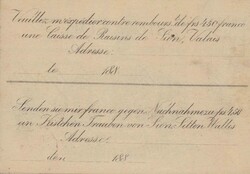 Veuillez m'expédier contre rembours! de frs 4.50 franco
une Caisse de Raisins de Sion, Valais
Adresse
le 188
Senden sie mir franco gegen Nachnahme zu frs 4.50
ein Kistchen Trauben von Sion, Sitten Wallis
Adresse
den 188